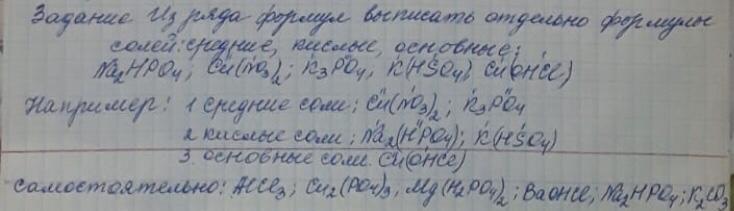 Задание Из ряда формул выписать отдельно формулы
солей: средние, кислые, основные:
Na₂HPO₄; Cu(NO₃)₂; K₃PO₄; K(HSO₄) Cu(OHCl)
Например: 1 средние соли; Cu(NO₃)₂; K₃PO₄
2 кислые соли; Na₂(HPO₄); K(HSO₄)
3. основные соли. Cu(OHCl)
Самостоятельно: AlCl₃; Cu₂(PO₄)₃; Mg(H₂PO₄)₂; BaOHCl; Na₂HPO₄; K₂CO₃